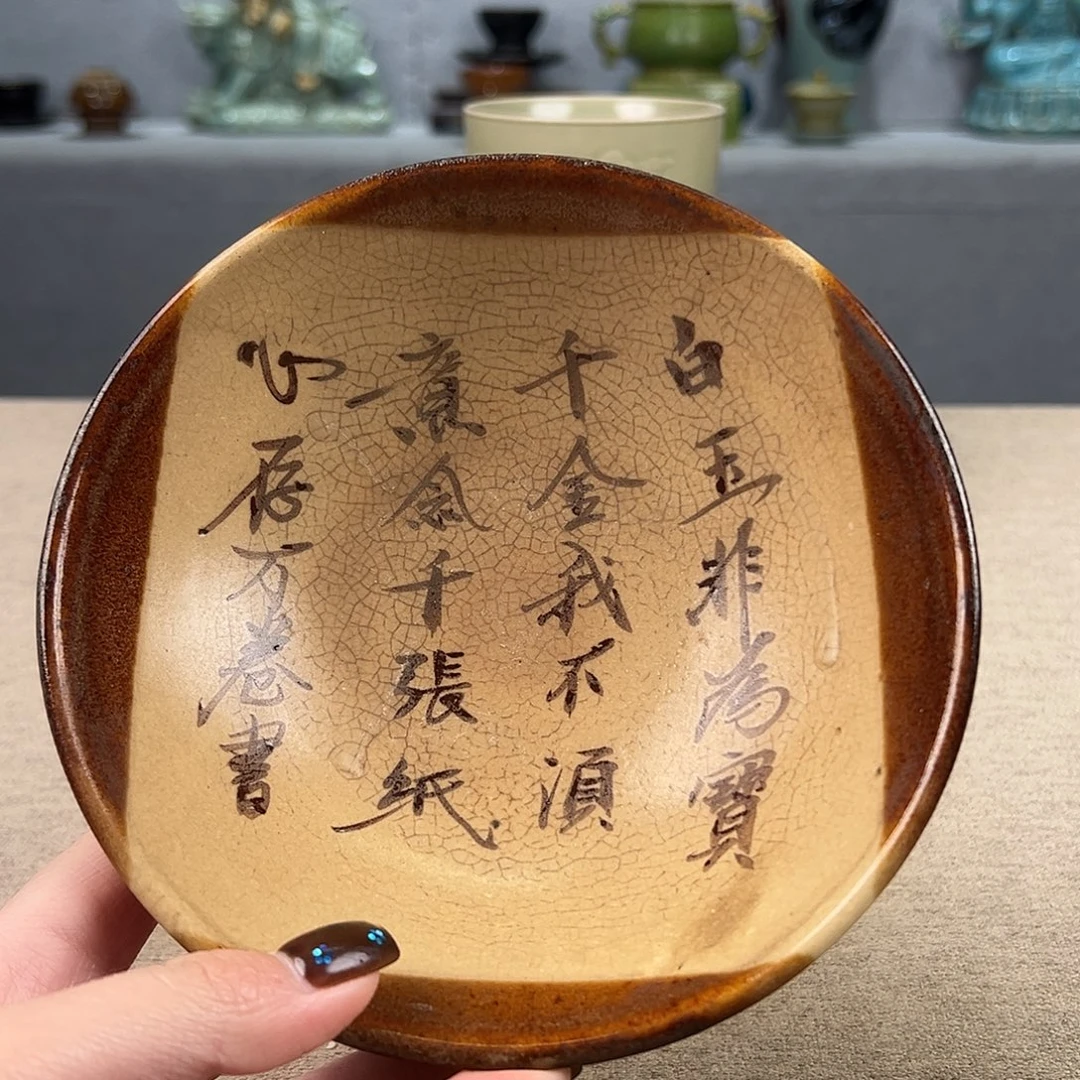 白玉非為寶
千金我不湏
意念千張紙
心存万卷書